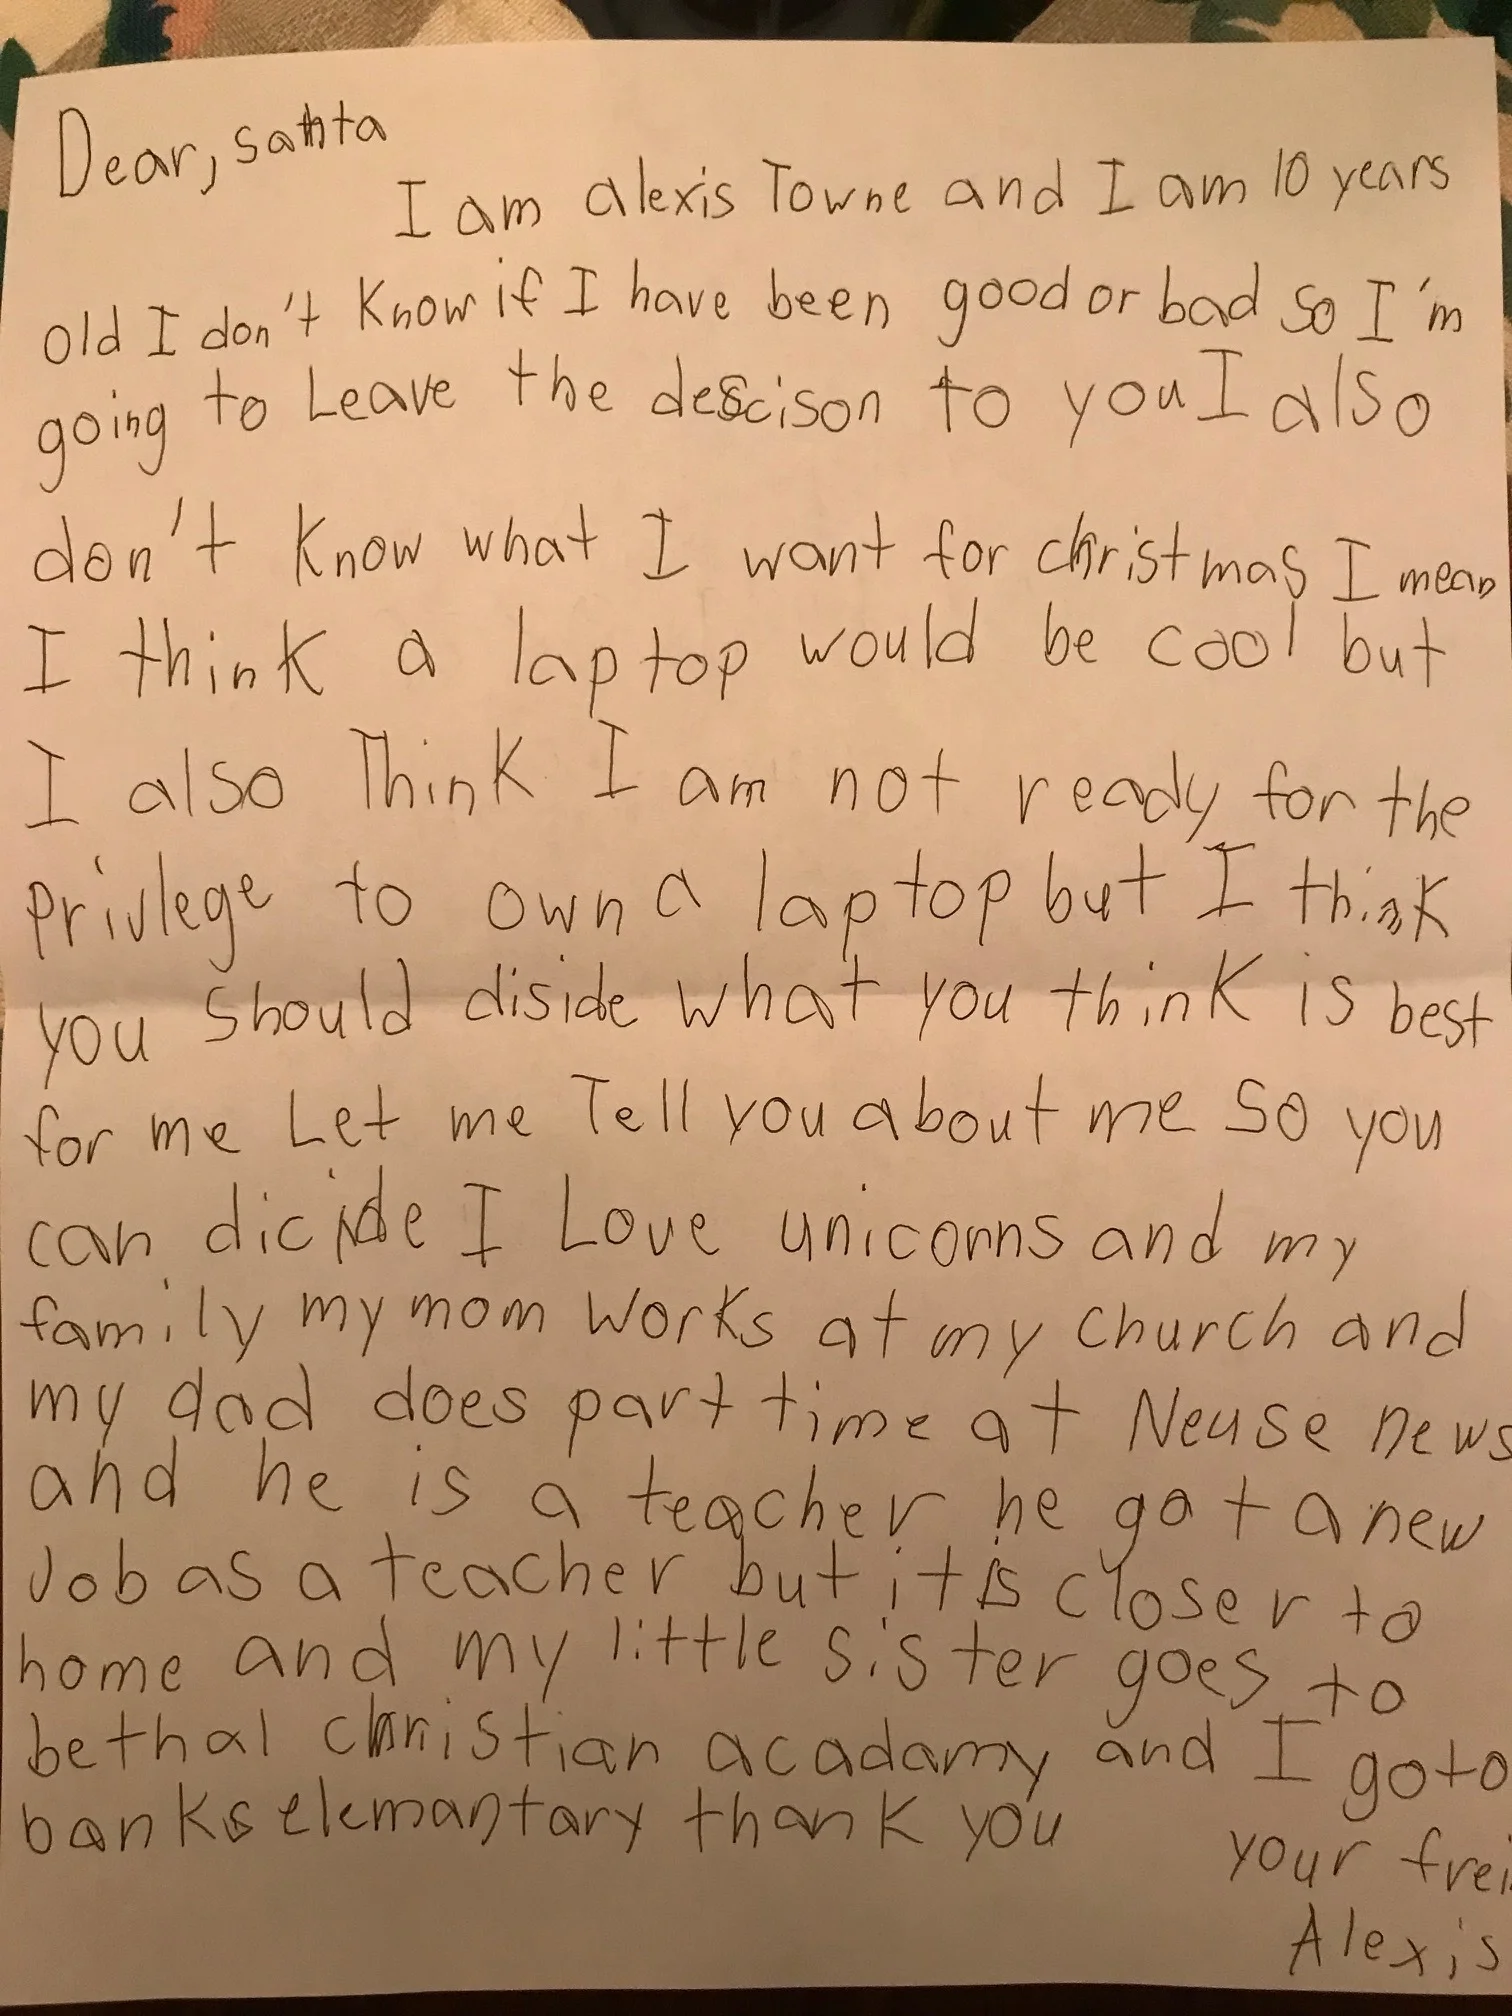 Dear, santa
I am alexis Towne and I am 10 years
old I don't know if I have been good or bad so I'm
going to Leave the descison to you I also
don't know what I want for christmas I mean
I think a laptop would be cool but
I also Think I am not ready for the
Privlege to own a laptop but I think
you should diside what you think is best
for me Let me Tell you about me so you
can dicide I Love unicorns and my
family my mom works at my church and
my dad does part time at Neuse news
and he is a teacher he got a new
Job as a teacher but it is closer to
home and my little sister goes to
bethal christian acadamy and I go to
banks elemantary thank you
your frei
Alexis